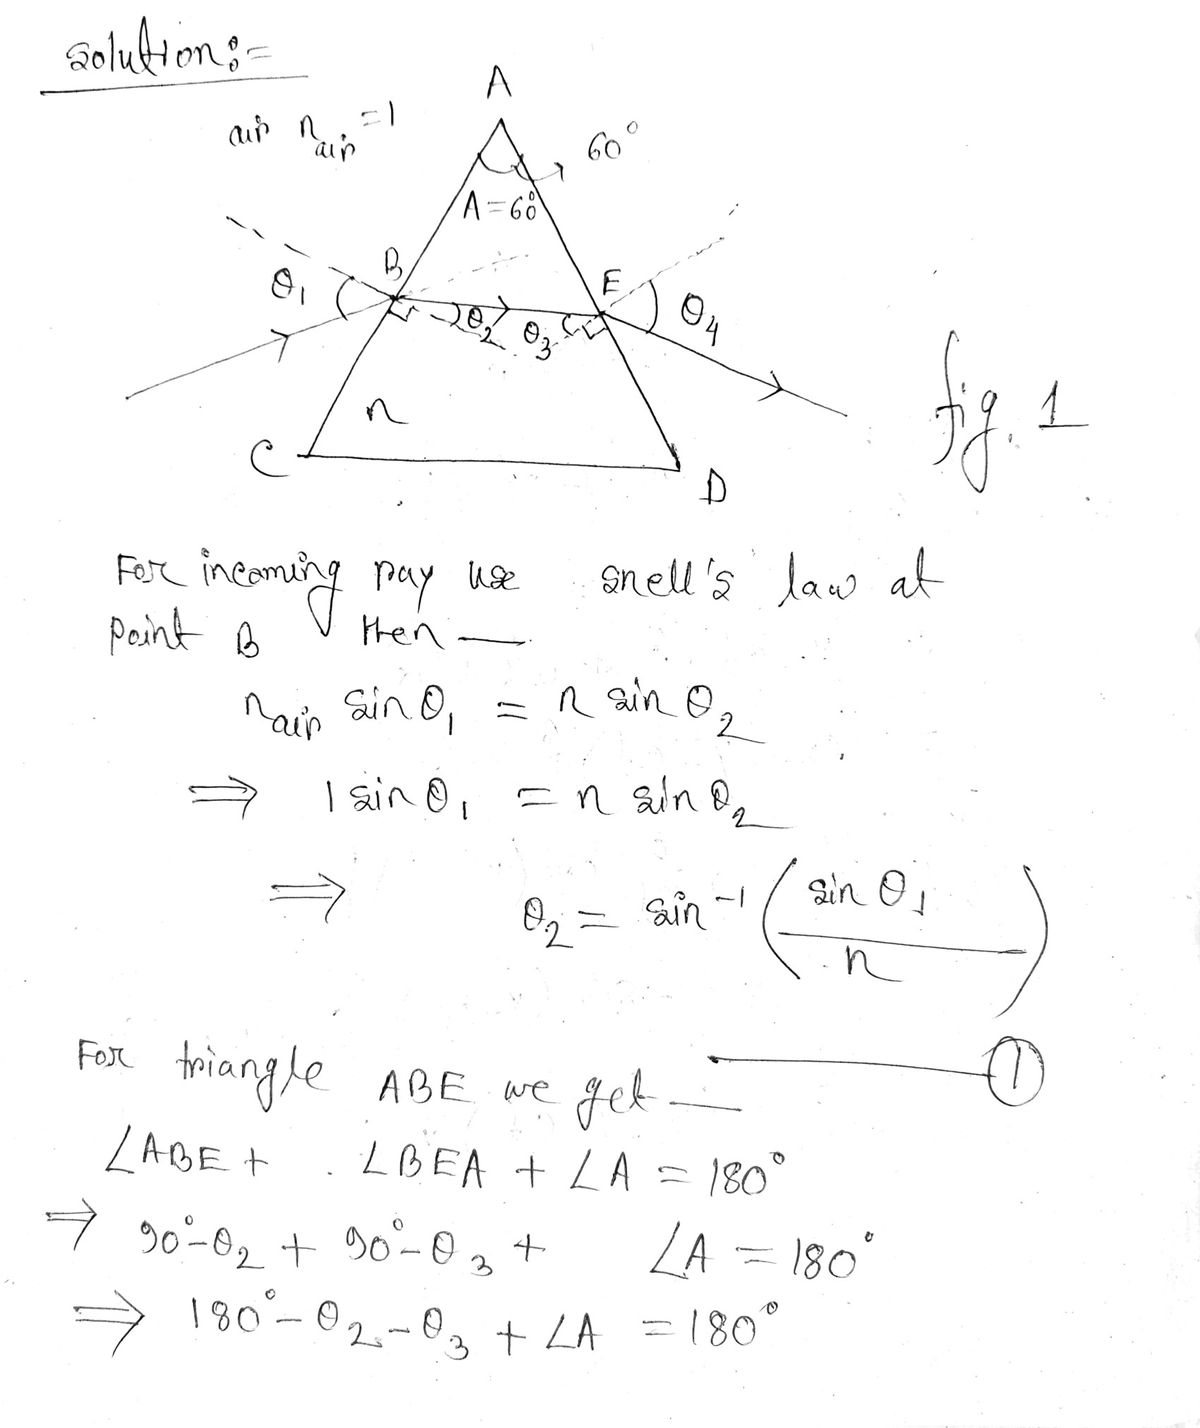 solution:=
A
air n_air = 1
60°
A=60°
B
E
θ₁
θ₂
θ₃
θ₄
n
C
D
fig. 1
For incoming ray use snell's law at
point B then —
n_air sin θ₁ = n sin θ₂
⇒ 1 sin θ₁ = n sin θ₂
⇒ θ₂ = sin⁻¹ (sin θ₁ / n)
①
For triangle ABE we get —
∠ABE + ∠BEA + ∠A = 180°
⇒ 90°-θ₂ + 90°-θ₃ + ∠A = 180°
⇒ 180°-θ₂-θ₃ + ∠A = 180°